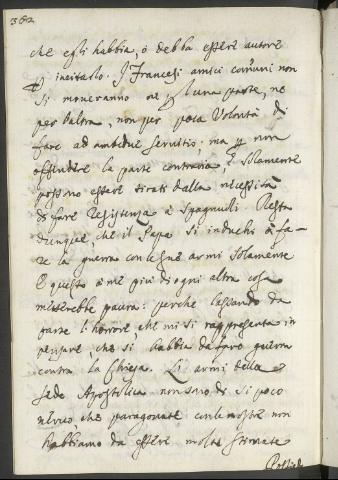 362
che egli habbia, ò debba essere autore
ꝑ incitarlo. I Francesi amici com̃uni non
si moueranno ne ꝑ l'una parte, ne
per l'altra, non per poca Volontà di
fare ad ambidue seruitio; ma ꝑ non
offendere la parte contraria, e solamente
possono essere tirati dalla necessità
di fare Resistenza à Spagnuoli. Resta
dunque, che il Papa si induchi à fa-
re la guerra con le sue armi solamente
E questo à me più di ogni altra cosa
metterebbe paura: perche lassando da
parte l'horrore, che mi si rappresenta in
pensare, che si habbia da far guerra
contra la Chiesa. Le armi della
sede Apostolica non sono di si poco
neruo, che paragonate con le nostre non
habbiamo da essere molto stimate